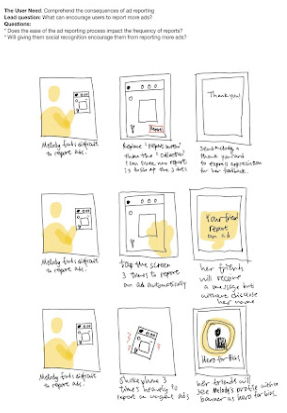 The User Need: Comprehend the consequences of ad reporting
Lead question: What can encourage users to report more ads?
Questions:
* Does the ease of the ad reporting process impact the frequency of reports?
* Will giving them social recognition encourage them from reporting more ads?
Report
Thank you!
Melody finds difficult
to report ads.
Replace "report button"
than the "
I can save now report
is build up the 3 dots
Send Melody a
thank you card
to express appreciation
for her feedback.
Your friend
report
an ad
Melody finds difficult
to report ads.
Tap the screen
3 times to report
an ad automatically
her friends
will receive
a message but
without disclose
her name
Hero for bias
Melody finds difficult
to report ads.
Shake phone 3
times heavily to
report an urgent ads
her friends will
see Melody's profile with a
banner as Hero for bias